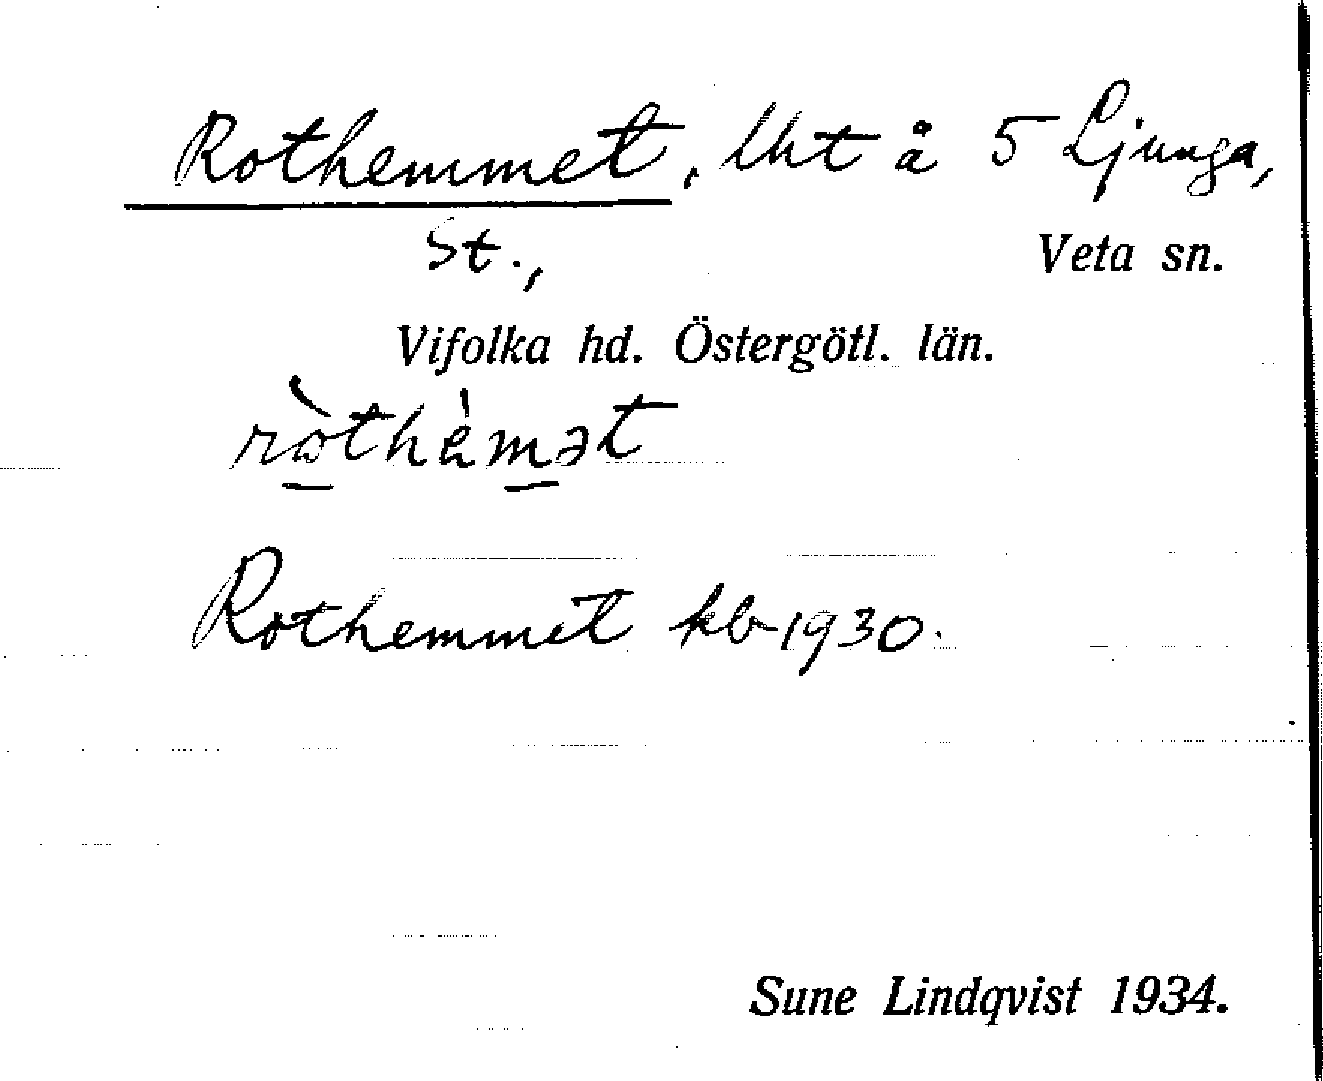 Rothemmet, lht å 5 Ljunga,
St.,
Veta sn.
Vifolka hd. Östergötl. län.
ròthèmət
Rothemmet kb 1930.
Sune Lindqvist 1934.